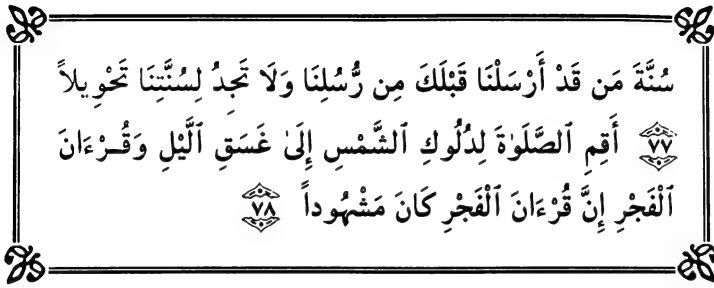 سُنَّةَ مَن قَدْ أَرْسَلْنَا قَبْلَكَ مِن رُّسُلِنَا وَلَا تَجِدُ لِسُنَّتِنَا تَحْوِيلاً
٧٧ أَقِمِ ٱلصَّلَوٰةَ لِدُلُوكِ ٱلشَّمْسِ إِلَىٰ غَسَقِ ٱلَّيْلِ وَقُـرْءَانَ
ٱلْفَجْرِ إِنَّ قُرْءَانَ ٱلْفَجْرِ كَانَ مَشْهُوداً ٧٨